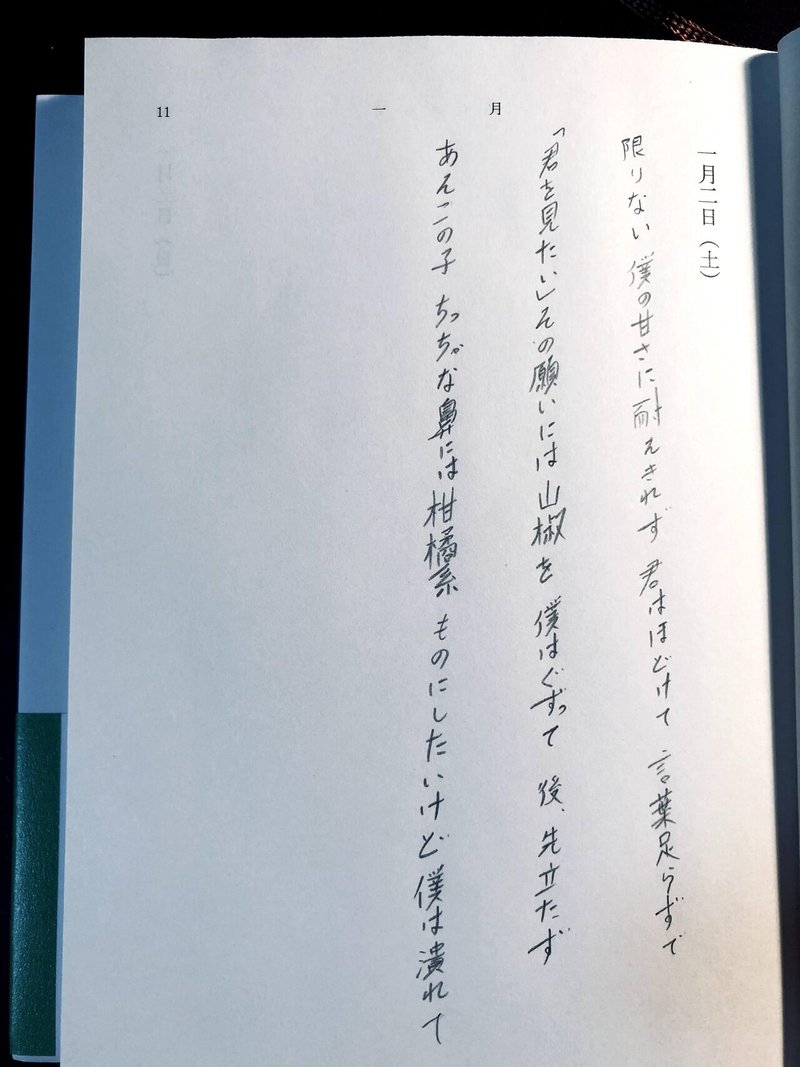 11
一月
一月二日（土）
限りない 僕の甘さに耐えきれず 君はほどけて 言葉足らずで
「君を見たい」その願いには山椒を 僕はぐずって 後、先立たず
あんこの子 ちっちゃな鼻には柑橘系 ものにしたいけど僕は潰れて